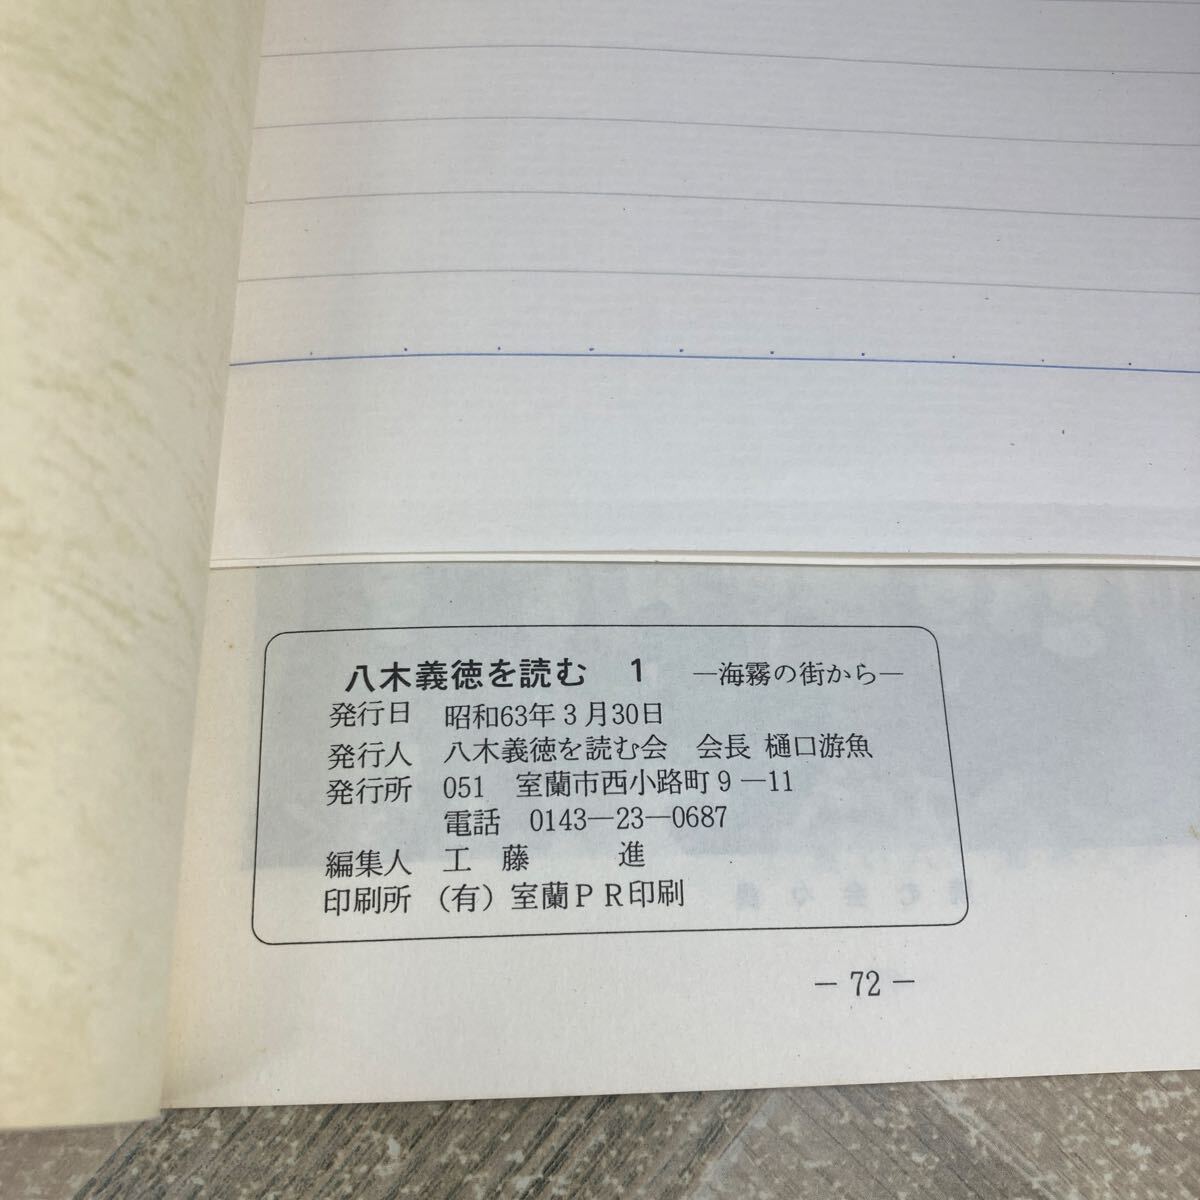 八木義徳を読む　1　―海霧の街から―
発行日　昭和63年3月30日
発行人　八木義徳を読む会　会長 樋口游魚
発行所　051　室蘭市西小路町9―11
電話　0143―23―0687
編集人　工　藤　　　進
印刷所　(有) 室蘭ＰＲ印刷
― 72 ―